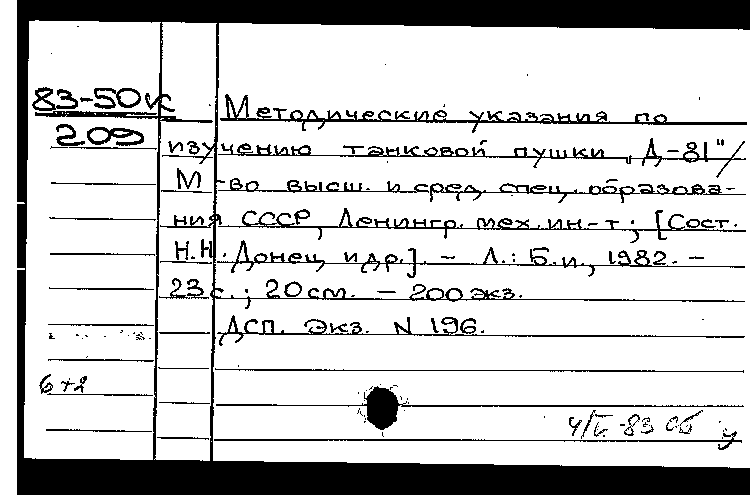 83-50к
209
Методические указания по
изучению танковой пушки „Д-81"/
М-во высш. и сред. спец. образова-
ния СССР, Ленингр. мех. ин-т; [Сост.
Н.Н. Донец и др.]. - Л.: Б.и., 1982. -
23 с.; 20 см. - 200 экз.
ДСП. Экз. N 196.
6+2
-83 Об